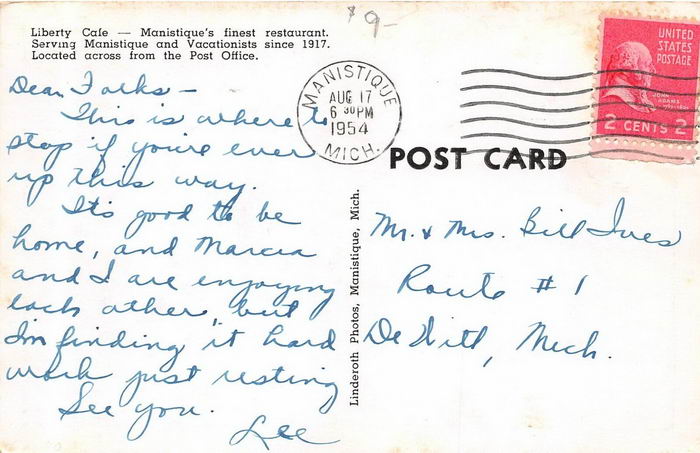 $9-
Liberty Cafe — Manistique's finest restaurant.
Serving Manistique and Vacationists since 1917.
Located across from the Post Office.
Dear Folks —
This is where to
stop if you're ever
up this way.
It's good to be
home, and Marcia
and I are enjoying
each other, but
I'm finding it hard
work just resting
See you.
Lee
MANISTIQUE
AUG 17
6 30 PM
1954
MICH.
UNITED
STATES
POSTAGE
JOHN
ADAMS
2 CENTS 2
POST CARD
Linderoth Photos, Manistique, Mich.
Mr. & Mrs. Bill Ives
Route #1
De Witt, Mich.